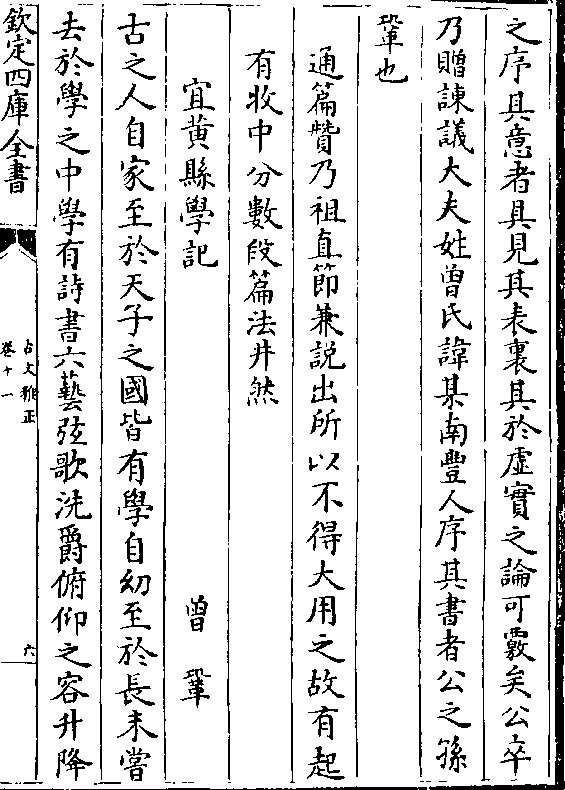 之序其意者具見其表裏其於虛實之論可覈矣公卒
乃贈諫議大夫姓曽氏諱某南豐人序其書者公之孫
鞏也
通篇贊乃祖直節兼説出所以不得大用之故有起
有收中分數段篇法井然
宜黄縣學記
曽鞏
古之人自家至於天子之國皆有學自幼至於長未嘗
去於學之中學有詩書六藝弦歌洗爵俯仰之容升降
欽定四庫全書
古文雅正
卷十一
六